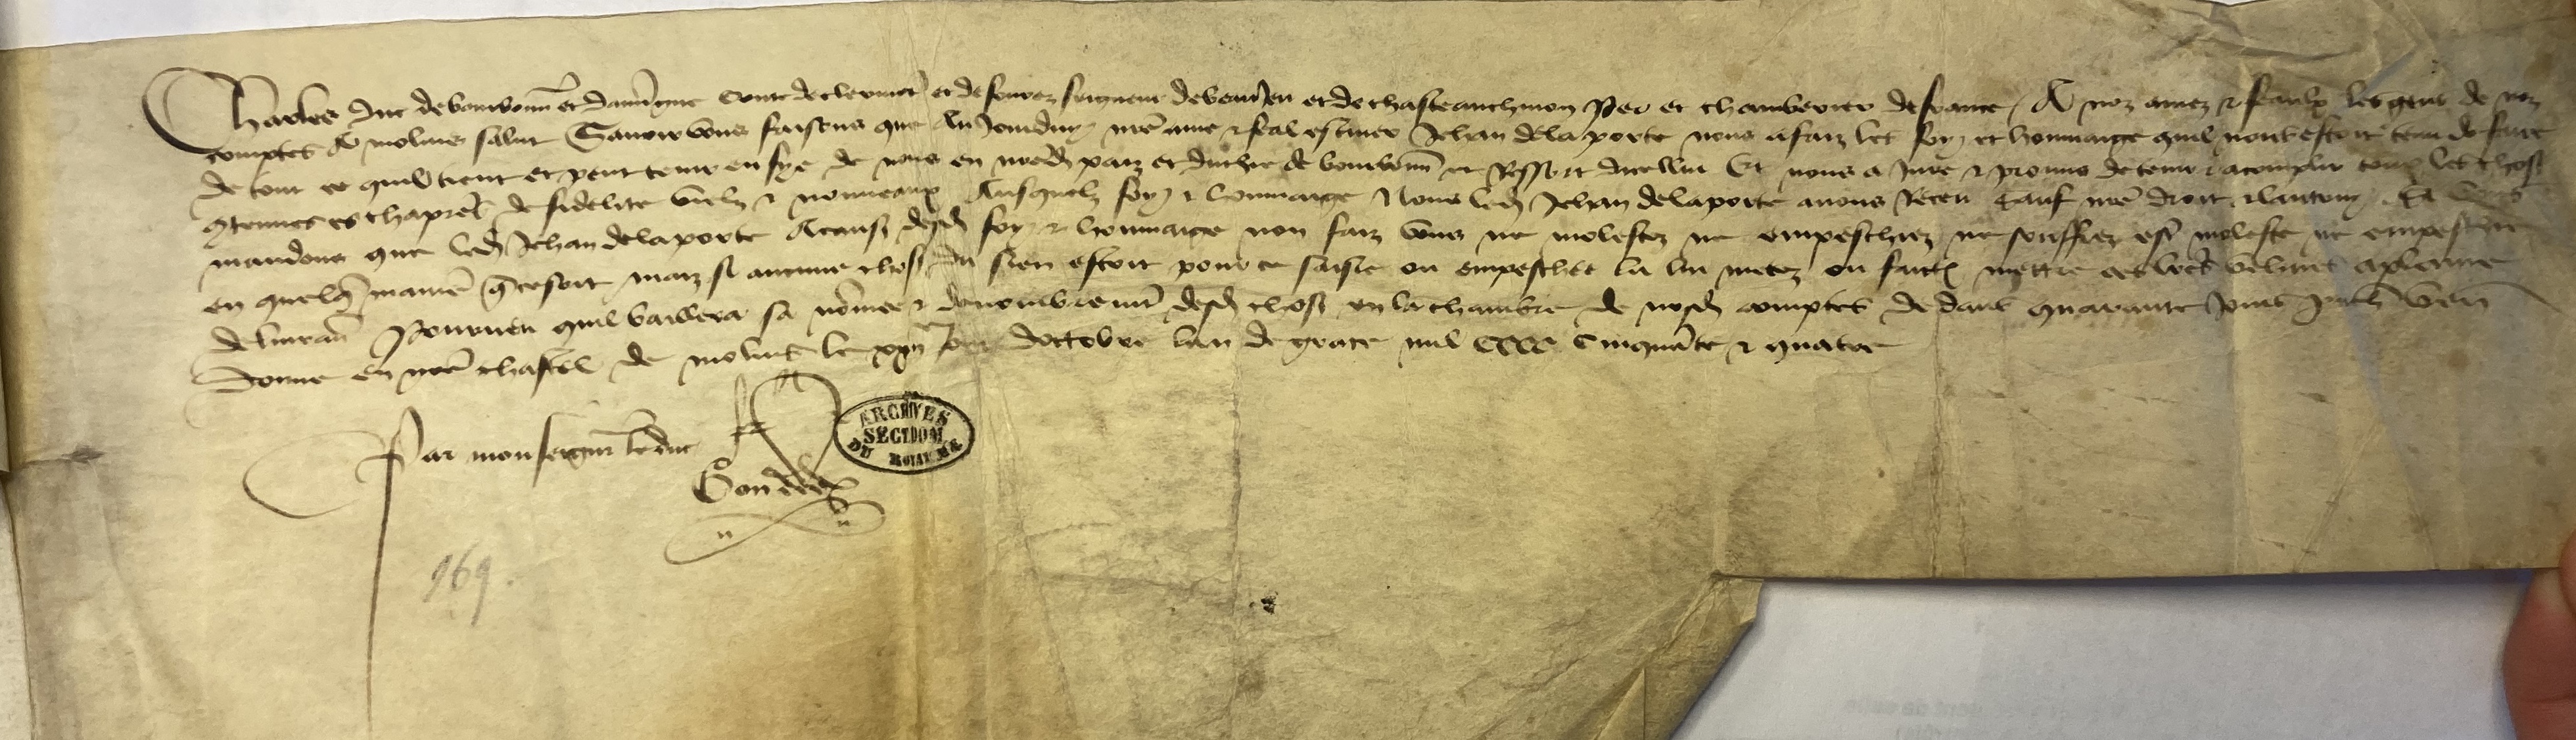 Charles duc de bourbonn et dauvergne conte de clermont et de fourez seigneur de beaujeu et de chasteauchinon Per et chamberier de france A noz amez & feaulx les gens de noz
comptes A molins salut Savoir vous faisons que Au jourduy nre ame & feal escuier Jehan de la porte nous a faiz les foy et hommaige quil nous estoit tenu de faire
de tout ce quil tient et peut tenir en fye de nous en nred paiz et duchie de bourbonn et Ressort dicellui Et nous a jure & promis de tenir & acomplir tous les choses
contenues es chapres de fidelite vielz & nouveaux Ausquelz foy & hommaige Nous led Jehan de la porte avons Receu sauf nre droit & lautruy Si vous
mandons que led Jehan de la porte A cause desd foy & hommaige non faiz vous ne molestez ne empeschez ne souffrez estre moleste ne empesche
en quelq maniere q ce soit maiz si aucune chose du sien estoit pour ce saisie ou empeschee la lui metez ou faites mettre a plenne
delivran Pourveu quil baillera sa nomee & denombrement desd choses en la chambre de nosd comptes dedans quarante jours
Donne en nre chastel de molins le jour doctobre lan de grace mil CCCC cinquante & quatre
Par monseigneur le duc
ARCHIVES
SECT DOM
DU ROYAUME
969.